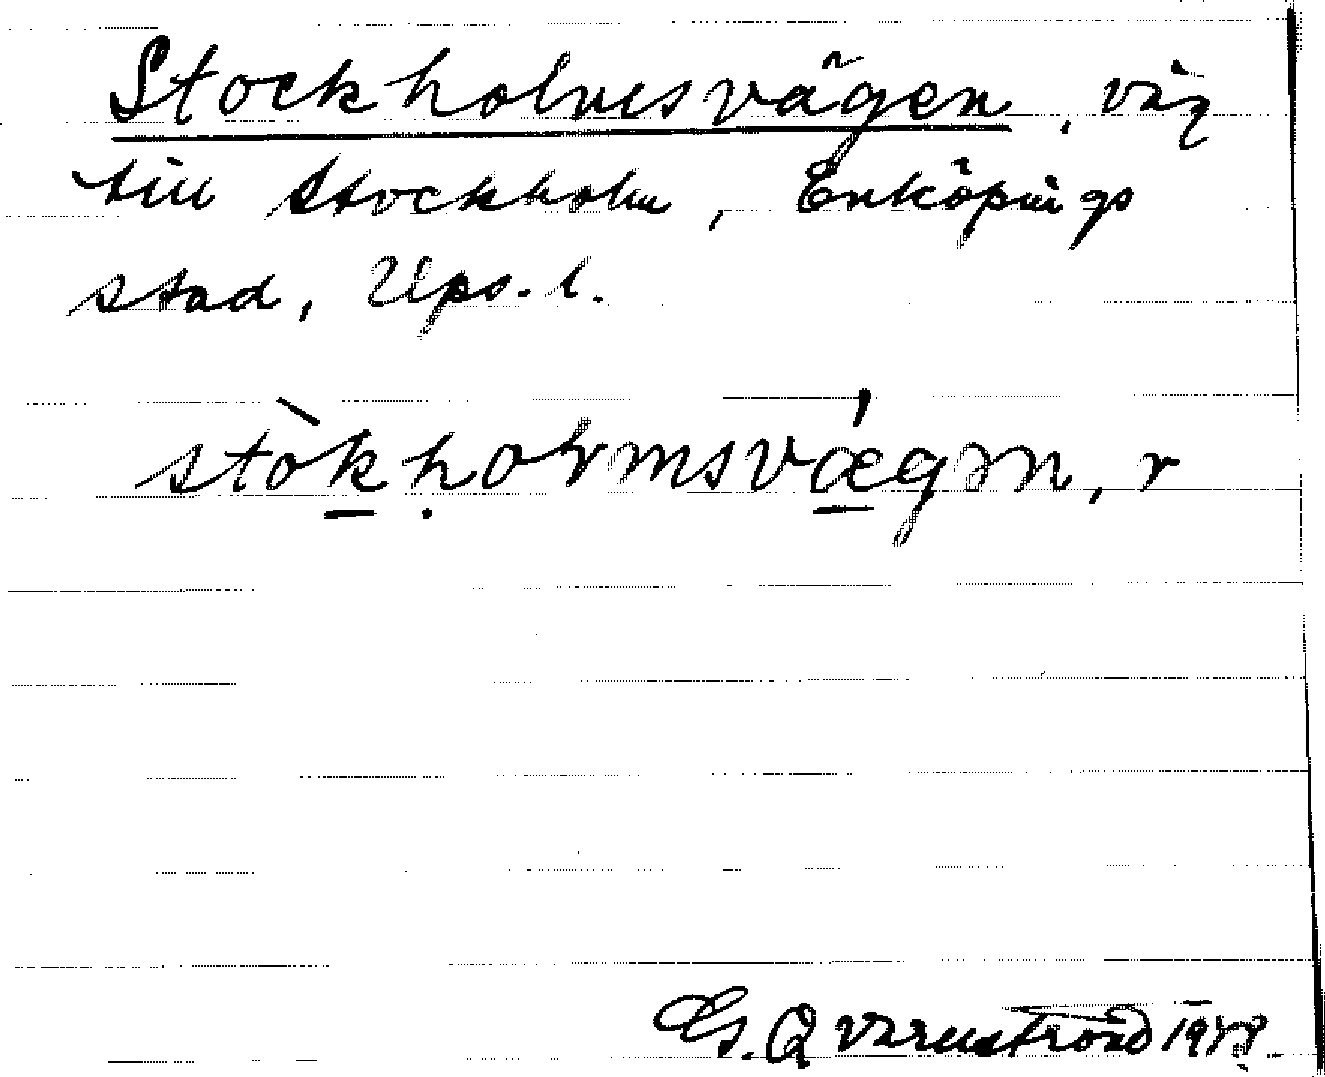 Stockholmsvägen, väg
till Stockholm, Enköpings
stad, Ups. l.
stòk̠ḥolmsvǽ̠gən, r
G. Qvarnström